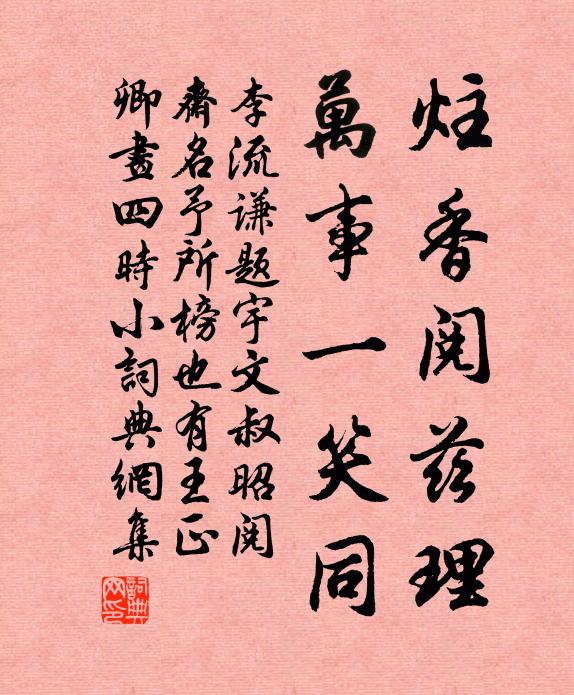 炷香閱茲理
萬事一笑同
李流謙題宇文叔昭閱
齋名予所榜也有王正
卿畫四時小詞典網集
詞典網印